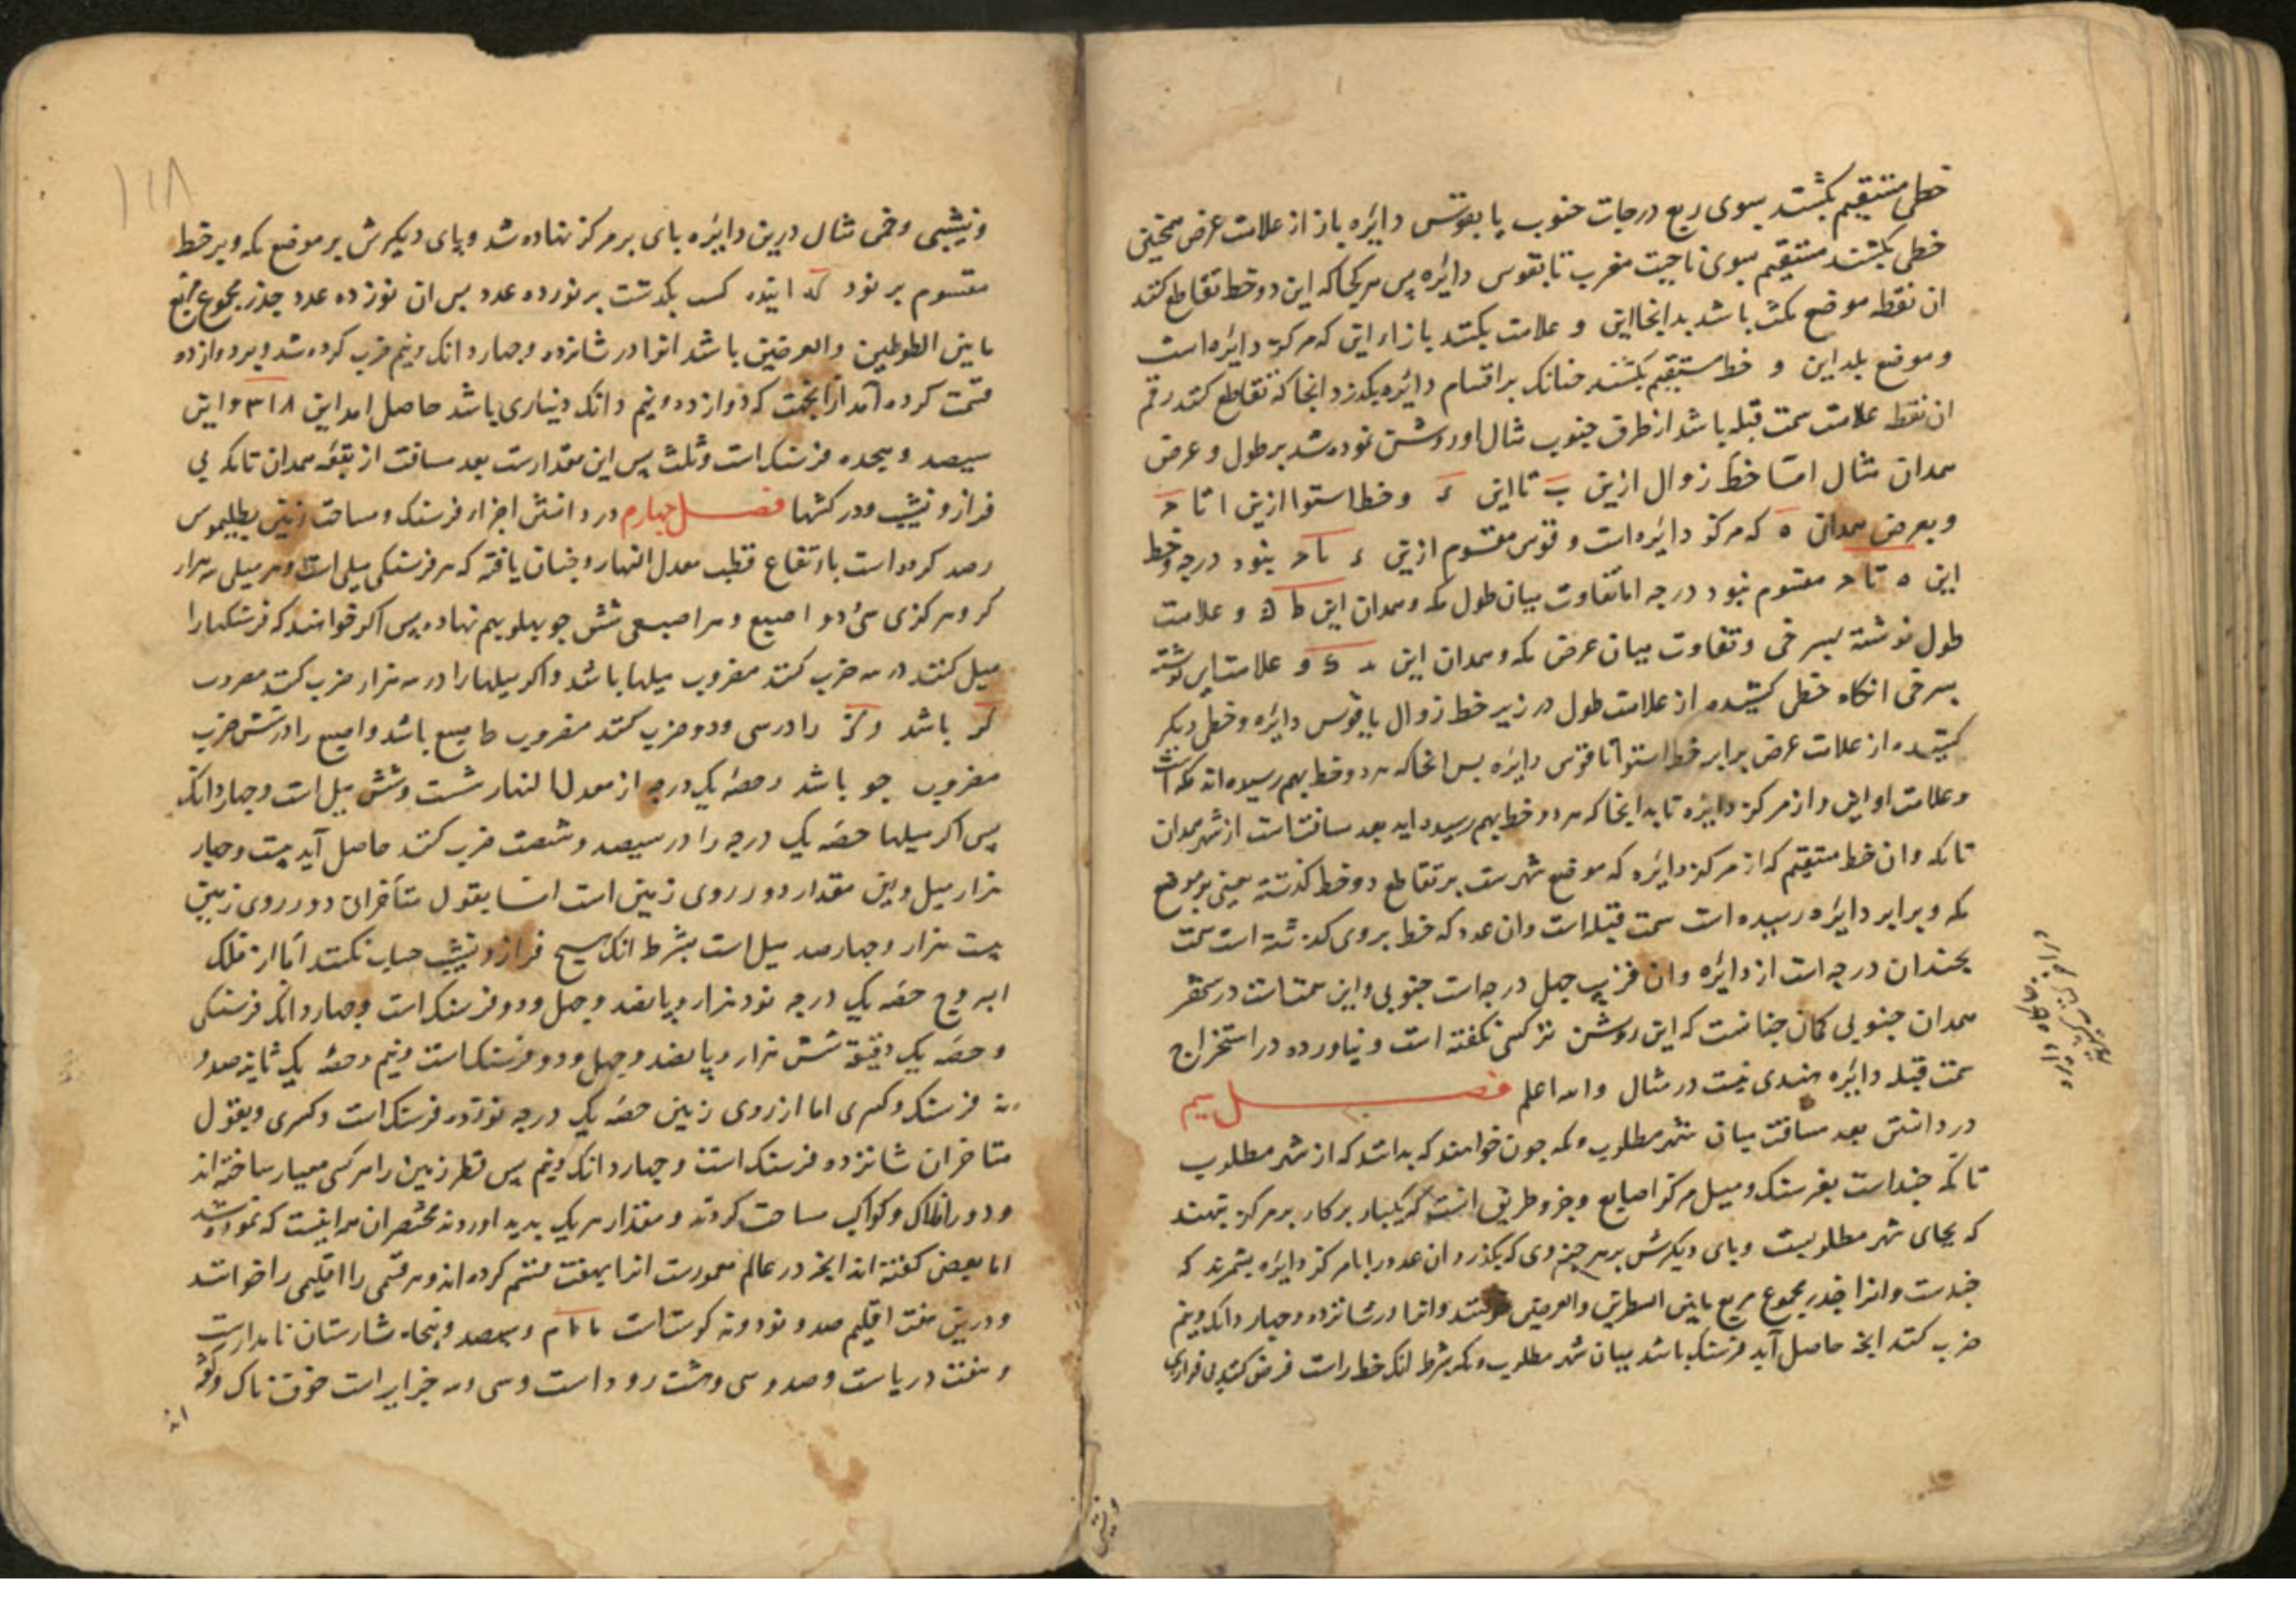 خطی مستقیم بکشند سوی ربع درجات جنوب یا بقوس دایره باز از علامت عرض همچنین
خطی بکشند مستقیم سوی ناحیت مغرب تا بقوس دایره پس هر کجا که این دو خط تقاطع کنند
ان نقطه موضع مکه باشد بدانجا این و علامت بکنند بازاء این که مرکز دایره است
و موضع بلد این و خط مستقیم بکشند جنانک بر اقسام دایره بکذرد انجا که تقاطع کند رقم
ان نقط علامت سمت قبله باشد از طرف جنوب مثال او روشن نموده شد بر طول و عرض
همدان مثال اما خط زوال ازین ب تا این ء و خط استوا ازین ا تا ح
و بعرض همدان ه که مرکز دایره است و قوس مقسوم ازین ء تا ح بنود درجه و خط
این ه تا ح مقسوم بنود درجه اما تفاوت میان طول مکه و همدان این ط و علامت
طول نوشته بسرخی و تفاوت میان عرض مکه و همدان این و علامت این نوشته
بسرخی انکاه خطی کشیده از علامت طول در زیر خط زوال یا قوس دایره و خطی دیکر
کشیده از علامت عرض برابر خط استوا تا قوس دایره بس انجا که هر دو خط بهم رسیده اند مکه است
و علامت او این و از مرکز دایره تا بدانجا که هر دو خط بهم رسیده اید بعد مسافتست از شهر همدان
تا مکه و ان خط مستقیم که از مرکز دایره که موضع شهرست بر تقاطع دو خط کذشته یعنی بر موضع
مکه و برابر دایره رسیده است سمت قبله است وان عدد که خط بروی کذشته است سمت
بجندان درجه است از دایره وان قریب جهل درجه است جنوبی و این سمتست در شهر
همدان جنوبی کمان جنانست که این روشن تر کسی نکفته است و نیاورده در استخراج
سمت قبله دایره هندی نیست در مثال والله اعلم فصل سیم
در دانستن بعد مسافت میان شهر مطلوب و مکه جون خواهند که بدانند که از شهر مطلوب
تا مکه جنداست بفرسنک و میل و کز و اصابع و جو طریق انست که یکبار برکار بر مرکز بنهند
که بجای شهر مطلوبست و بای دیکرش بر هر جزوی که بکذرد ان عدد را با مرکز دایره بشمرند که
جندست و انرا جذر مجموع مربع مابین الطولین والعرضین کویند و انرا در شانزده و جهار دانک و نیم
ضرب کنند انجه حاصل آید فرسنک باشد میان شهر مطلوب و مکه بشرط انک خط راست فرض کنند بی فرازی
و نشیبی
و نشیبی و خمی مثال درین دایره بای بر مرکز نهاده شد و بای دیکرش بر موضع مکه و بر خط
مقسوم بر نود که ازینه کسب بکذشت بر نوزده عدد بس ان نوزده عدد جذر مجموع مربع
مابین الطولین والعرضین باشد انرا در شانزده و جهار دانک و نیم ضرب کرده شد و بر دوازده
قسمت کرده آمد از انجهت که دوازده و نیم دانک دیناری باشد حاصل امد این ۳۱۸ و این
سیصد و هیجده فرسنک است و ثلث پس این مقدارست بعد مسافت از بقعه همدان تا مکه بی
فراز و نشیب و در کشتها فصل جهارم در دانستن اجزاء فرسنک و مساحت زمین بطلیموس
رصد کرده است بارتفاع قطب معدل النهار و جنان یافته که هر فرسنکی میلی است و هر میلی سه هزار
کز و هر کزی سی و دو اصبع و هر اصبعی شش جو بهلو بهم نهاده پس اکر خواهند که فرسنکها را
میل کنند در سه ضرب کنند مضروب میلها باشد و اکر میلها را در سه هزار ضرب کنند مضروب
کز باشد و کز را در سی و دو ضرب کنند مضروب اصبع باشد و اصبع را در شش ضرب
مضروب جو باشد و حصه یک درجه از معدل النهار شست و شش میل است و جهار دانک
پس اکر میلها حصه یک درجه را در سیصد و شصت ضرب کنند حاصل آید بیست و جهار
هزار میل و این مقدار دور روی زمین است اما بقول متأخران دور روی زمین
بیست هزار و جهار صد میل است بشرط انک هیچ فراز و نشیب حساب نکنند اما از فلک
البروج حصه یک درجه نود هزار و پانصد و جهل و دو فرسنک است و جهار دانک فرسنکی
و حصه یک دقیقه شش هزار و پانصد و جهل و دو فرسنک است و نیم و حصه یک ثانیه صد و
نه فرسنک و کسری اما از روی زمین حصه یک درجه نوزده فرسنک است و کسری و بقول
متاخران شانزده فرسنک است و جهار دانک و نیم پس قطر زمین را هر کسی معیار ساخته اند
و دور افلاک و کواکب مساحت کردند و مقدار هر یک بدید اوردند مختصر ان همه اینست که نموده شد
اما بعضی کفته اند انجه در عالم معمورست انرا بهفت قسم کرده اند و هر قسمی را اقلیمی را خوانند
و درین هفت اقلیم صد و نود و نه کوهست با نام و سیصد و پنجاه شارستان نامدارست
و هفت دریاست و صد و سی و هشت رود است و سی و سه جزایر است خوفناک و کو